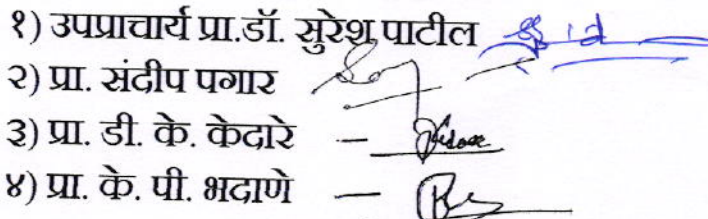 १) उपप्राचार्य प्रा.डॉ. सुरेश पाटील
२) प्रा. संदीप पगार
३) प्रा. डी. के. केदारे –
४) प्रा. के. पी. भदाणे –